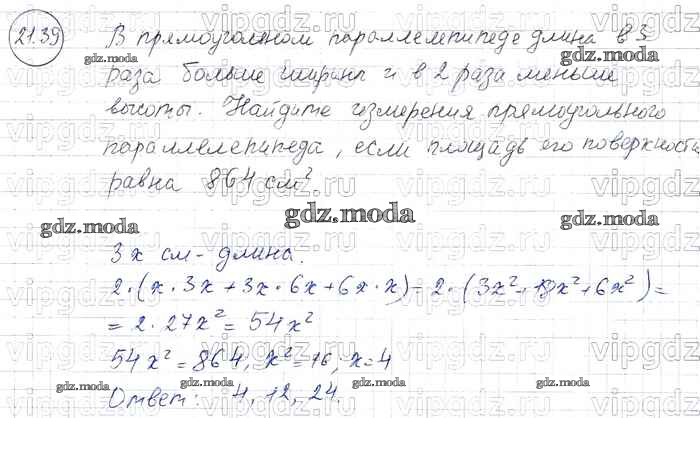 21.39
В прямоугольном параллелепипеде длина в 3
раза больше ширины и в 2 раза меньше
высоты. Найдите измерения прямоугольного
параллелепипеда, если площадь его поверхности
равна 864 см²
3x см - длина.
2·(x·3x+3x·6x+6x·x) = 2·(3x²+18x²+6x²) =
= 2·27x² = 54x²
54x² = 864, x² = 16; x = 4
Ответ: 4, 12, 24.
gdz.moda
vipgdz.ru